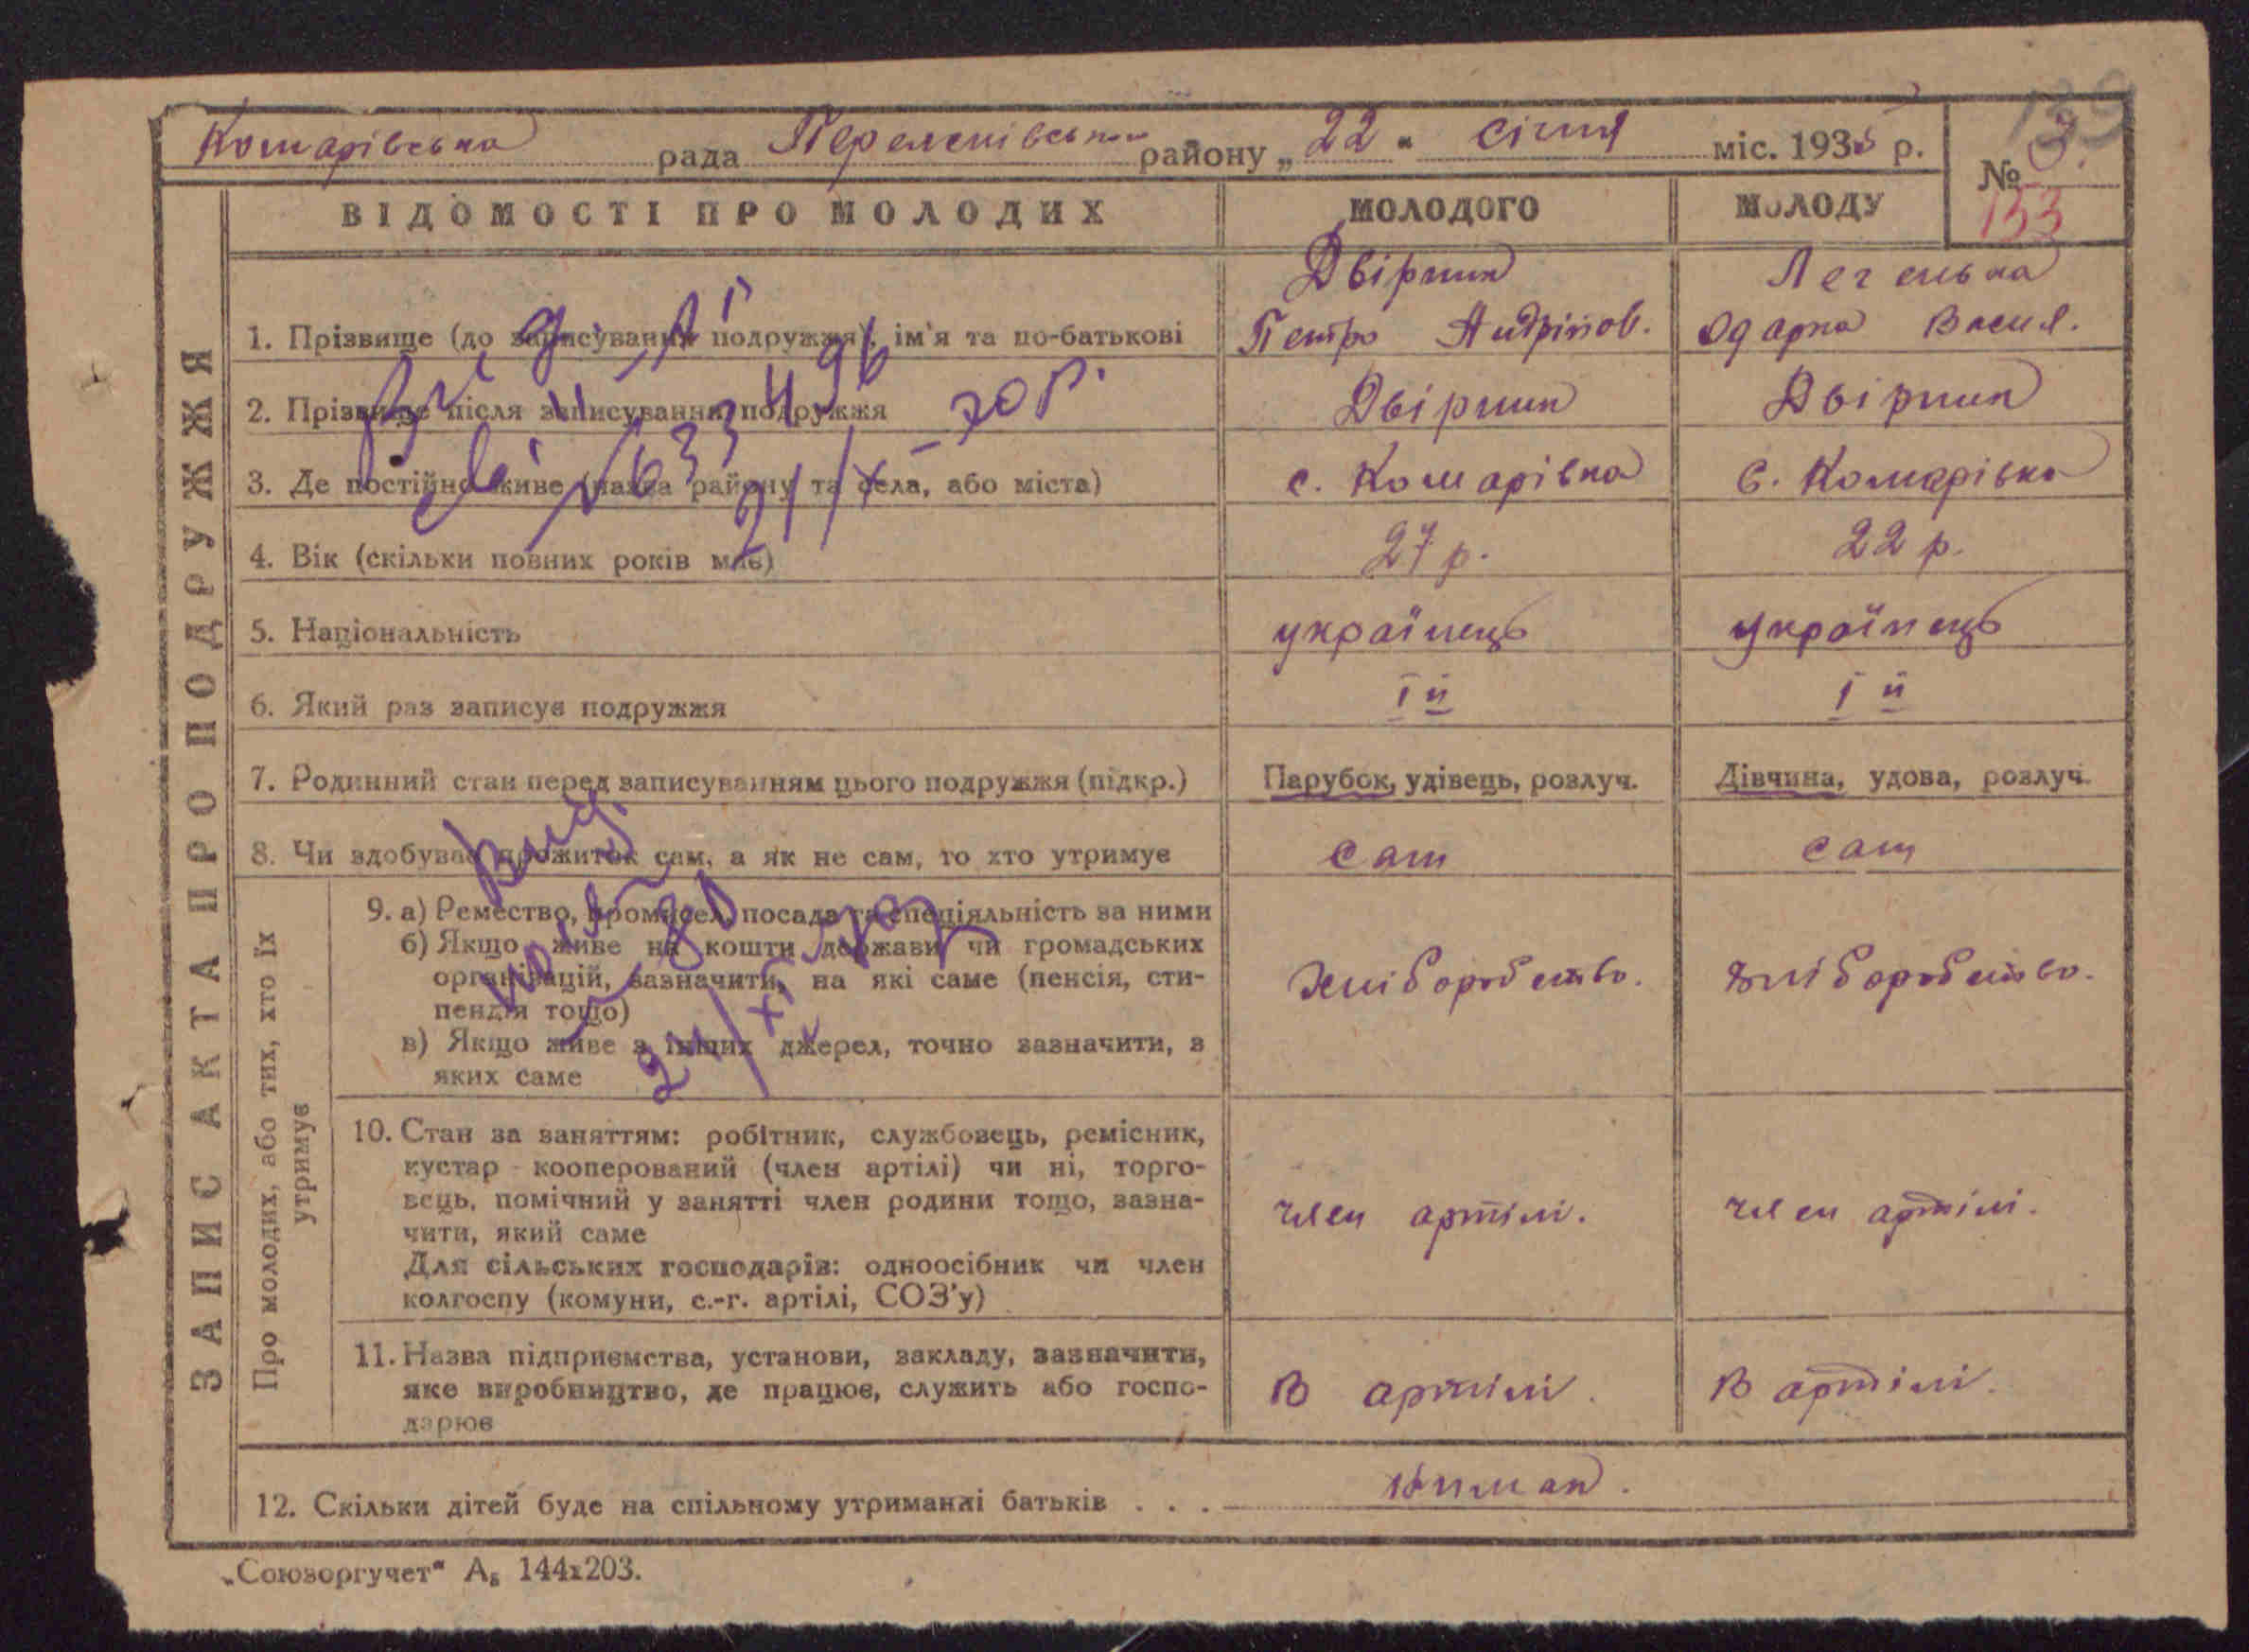 139
Комарівська рада Перелюбівська району „22“ січня міс. 1935 р.
№ 3.
133
ЗАПИС АКТА ПРО ПОДРУЖЖЯ
ВІДОМОСТІ ПРО МОЛОДИХ МОЛОДОГО МОЛОДУ
1. Прізвище (до записування подружжя), ім'я та по-батькові
Двірник
Петро Андрійов.
Одарка Васил.
2. Прізвище після записування подружжя Двірник Двірник
3. Де постійно живе (назва району та села, або міста) с. Комарівка с. Комарівка
4. Вік (скільки повних років має) 27 р. 22 р.
5. Національність українець українець
6. Який раз записує подружжя І й І й
7. Родинний стан перед записуванням цього подружжя (підкр.) Парубок, удівець, розлуч. Дівчина, удова, розлуч.
8. Чи здобуває прожиток сам, а як не сам, то хто утримує сам сам
Про молодих, або тих, хто їх
утримує
9. а) Ремество, промисел, посада та спеціяльність за ними
б) Якщо живе на кошти держави чи громадських
організацій, зазначити, на які саме (пенсія, сти-
пендія тощо)
в) Якщо живе з інших джерел, точно зазначити, з
яких саме
Хліборобство. Хліборобство.
10. Стан за заняттям: робітник, службовець, ремісник,
кустар - кооперований (член артілі) чи ні, торго-
вець, помічний у занятті член родини тощо, зазна-
чити, який саме
Для сільських господарів: одноосібник чи член
колгоспу (комуни, с.-г. артілі, СОЗ'у)
член артілі. член артілі.
11. Назва підприємства, установи, закладу, зазначити,
яке виробництво, де працює, служить або госпо-
дарює
В артілі. В артілі.
12. Скільки дітей буде на спільному утриманні батьків . . .
„Союзоргучет“ А₅ 144х203.